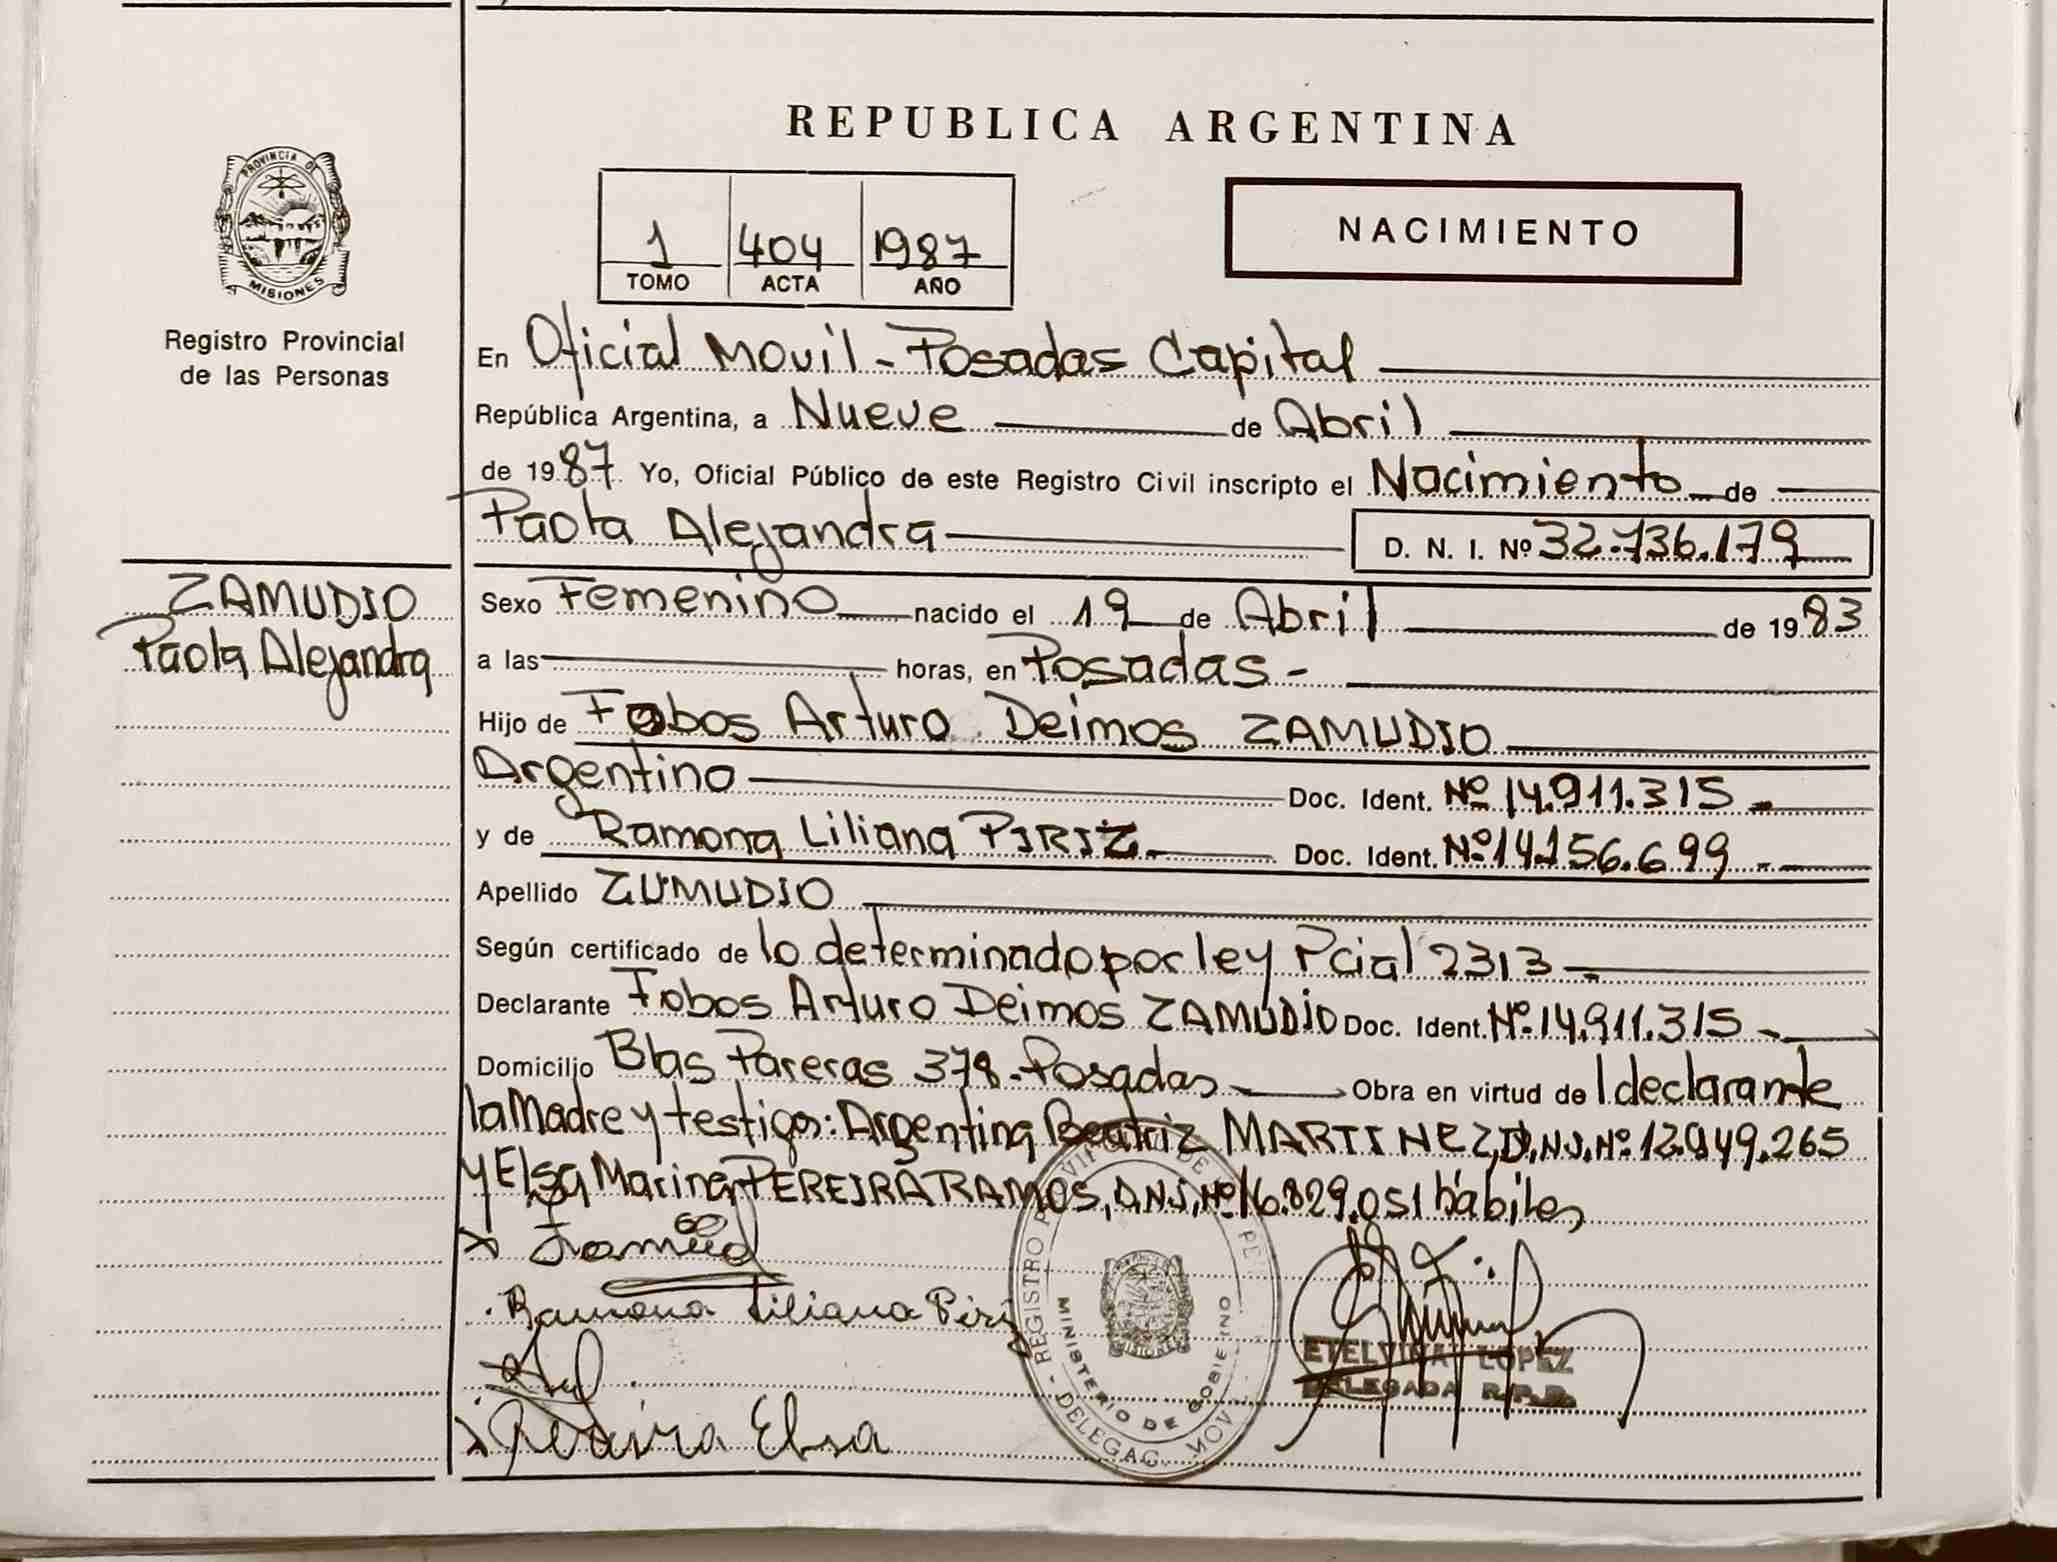 REPUBLICA ARGENTINA
PROVINCIA DE
MISIONES
Registro Provincial
de las Personas
1 404 1987
TOMO ACTA AÑO
NACIMIENTO
En Oficial Movil - Posadas Capital
República Argentina, a Nueve de Abril
de 1987 Yo, Oficial Público de este Registro Civil inscripto el Nacimiento de
Paola Alejandra D. N. I. Nº 32.736.179
ZAMUDIO
Paola Alejandra
Sexo Femenino nacido el 19 de Abril de 1983
a las horas, en Posadas -
Hijo de Fobos Arturo Deimos ZAMUDIO
Argentino Doc. Ident. Nº 14.911.315 -
y de Ramona Liliana PIRIZ - Doc. Ident. Nº 14.156.699 -
Apellido ZUMUDIO
Según certificado de lo determinado por ley Pcial 2313 -
Declarante Fobos Arturo Deimos ZAMUDIO Doc. Ident. Nº 14.911.315 -
Domicilio Blas Pareras 378 - Posadas - Obra en virtud de l declarante
la Madre y testigos: Argentina Beatriz MARTINEZ, D.N.I. Nº 12.949.265
y Elsa Marina PEREIRA RAMOS, D.N.I. Nº 16.829.051 hábiles
Ramona Liliana Piriz
Pereira Elsa
REGISTRO DE
MINISTERIO DE GOBIERNO
DELEGAC. MOV
MISIONES
ETELVINA LOPEZ
DELEGADA R.P.P.